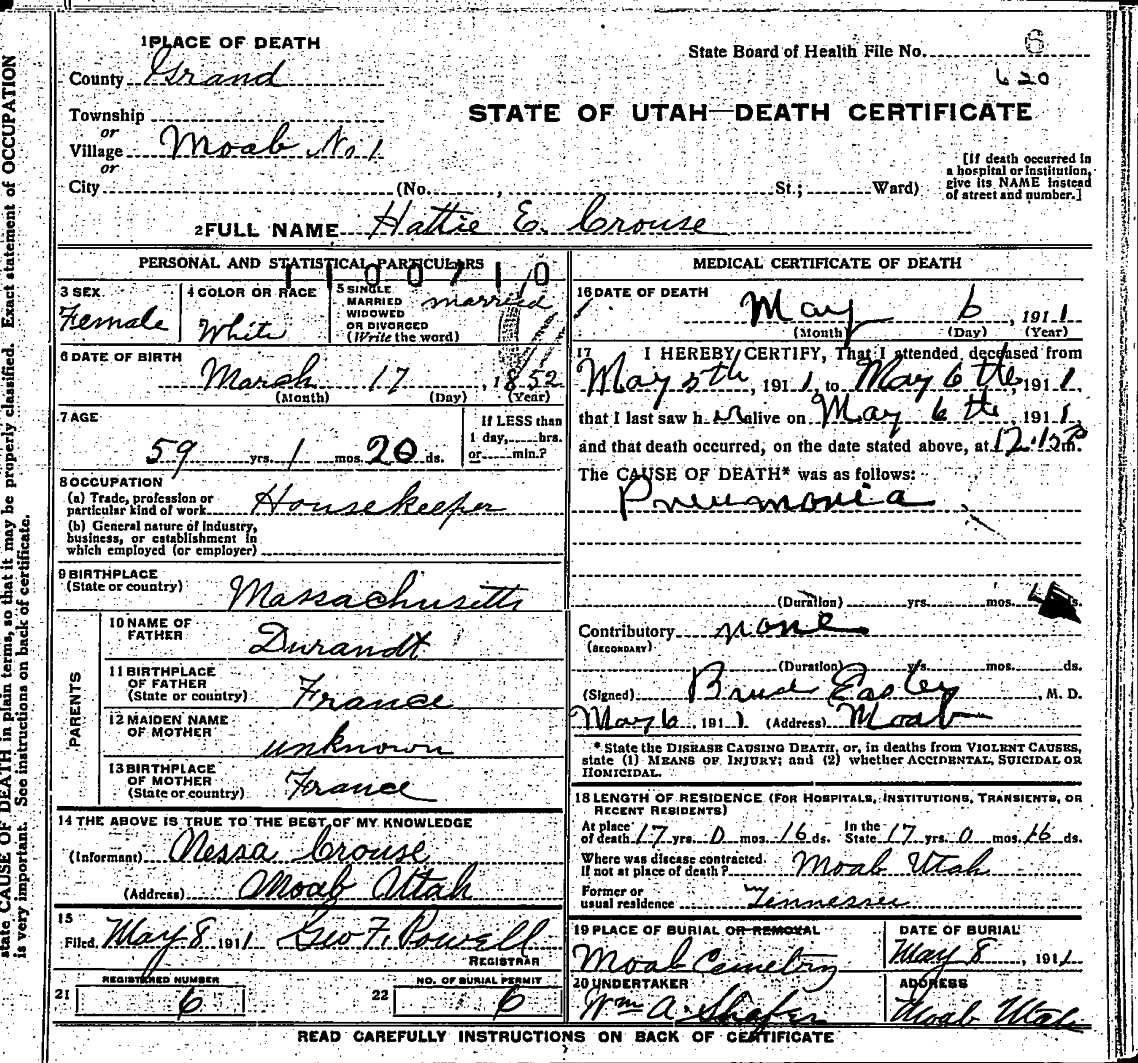 1 PLACE OF DEATH
State Board of Health File No. 6
County Grand
620
STATE OF UTAH—DEATH CERTIFICATE
Township
or
Village Moab No. 1
or
City (No. , St.; Ward)
[If death occurred in
a hospital or institution,
give its NAME instead
of street and number.]
2 FULL NAME Hattie E. Crouse
PERSONAL AND STATISTICAL PARTICULARS
1100710
3 SEX
Female
4 COLOR OR RACE
White
5 SINGLE
MARRIED
WIDOWED
OR DIVORCED
(Write the word)
married
6 DATE OF BIRTH
March 17, 1852
(Month) (Day) (Year)
7 AGE
59 yrs. 1 mos. 20 ds.
If LESS than
1 day, hrs.
or min.?
8 OCCUPATION
(a) Trade, profession or
particular kind of work Housekeeper
(b) General nature of industry,
business, or establishment in
which employed (or employer)
9 BIRTHPLACE
(State or country) Massachusetts
PARENTS
10 NAME OF
FATHER Durandt
11 BIRTHPLACE
OF FATHER
(State or country) France
12 MAIDEN NAME
OF MOTHER unknown
13 BIRTHPLACE
OF MOTHER
(State or country) France
14 THE ABOVE IS TRUE TO THE BEST OF MY KNOWLEDGE
(Informant) Nessa Crouse
(Address) Moab Utah
15
Filed May 8 1911 Geo F. Powell
REGISTRAR
REGISTERED NUMBER
21 6
NO. OF BURIAL PERMIT
22 6
MEDICAL CERTIFICATE OF DEATH
16 DATE OF DEATH
May 6, 1911
(Month) (Day) (Year)
17 I HEREBY CERTIFY, That I attended deceased from
May 5th, 1911, to May 6th, 1911,
that I last saw her alive on May 6th, 1911,
and that death occurred, on the date stated above, at 12.15 Pm.
The CAUSE OF DEATH* was as follows:
Pneumonia
(Duration) yrs. mos. ds.
Contributory none
(SECONDARY)
(Duration) yrs. mos. ds.
(Signed) Bruce Easley M. D.
May 6, 1911 (Address) Moab
* State the DISEASE CAUSING DEATH, or, in deaths from VIOLENT CAUSES,
state (1) MEANS OF INJURY; and (2) whether ACCIDENTAL, SUICIDAL OR
HOMICIDAL.
18 LENGTH OF RESIDENCE (FOR HOSPITALS, INSTITUTIONS, TRANSIENTS, OR
RECENT RESIDENTS)
At place In the
of death 17 yrs. 0 mos. 16 ds. State 17 yrs. 0 mos. 16 ds.
Where was disease contracted,
If not at place of death? Moab Utah
Former or
usual residence Tennessee
19 PLACE OF BURIAL OR REMOVAL
Moab Cemetry
DATE OF BURIAL
May 8, 1911
20 UNDERTAKER
Wm A. Shafer
ADDRESS
Moab Utah
READ CAREFULLY INSTRUCTIONS ON BACK OF CERTIFICATE
state CAUSE OF DEATH in plain terms, so that it may be properly classified. Exact statement of OCCUPATION
is very important. See instructions on back of certificate.